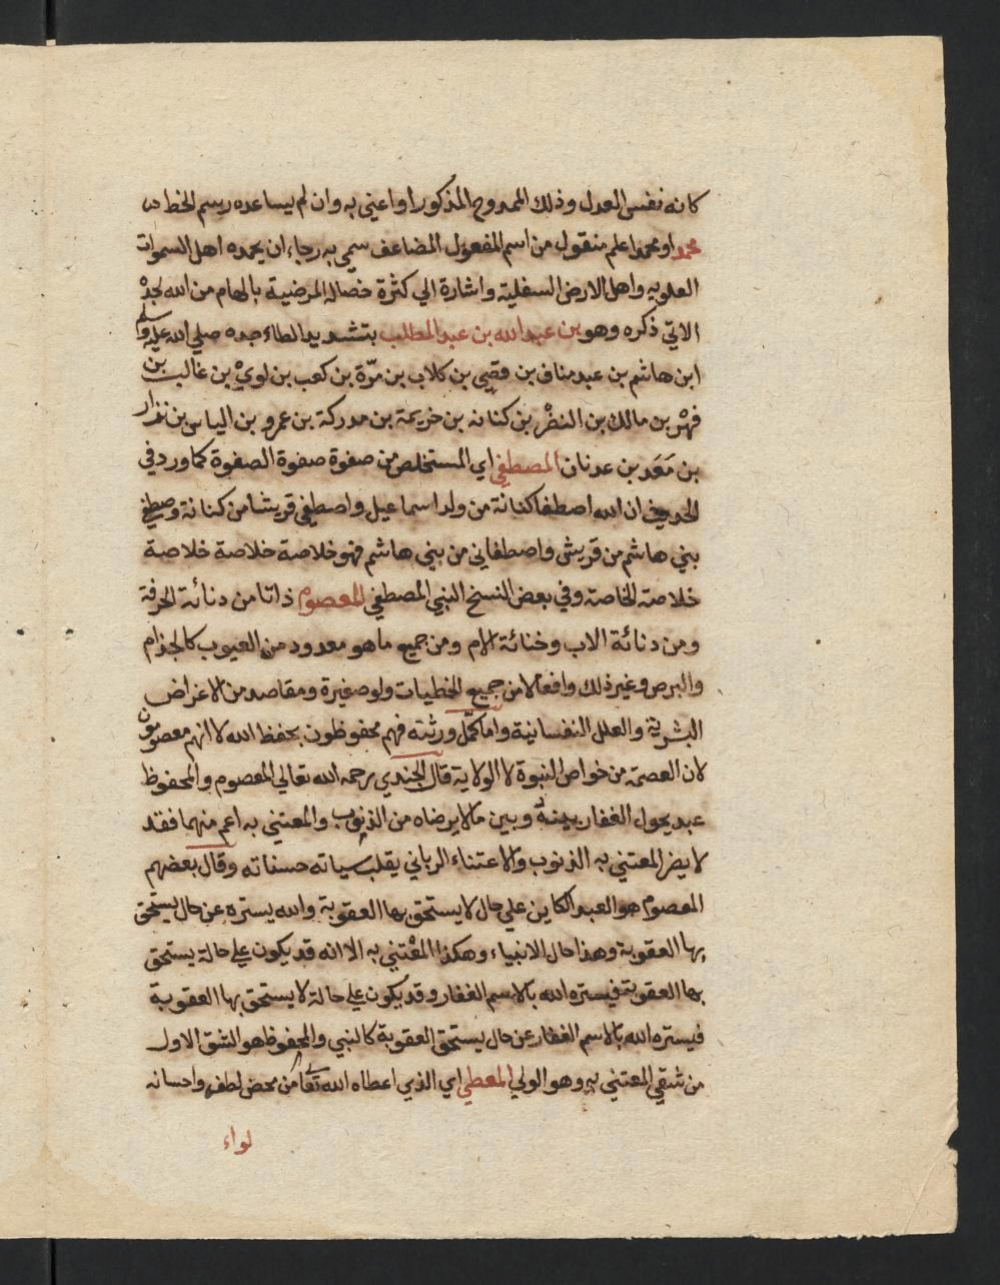 كانه نفس العدل وذلك الممدوح المذكور او اعني به وان لم يساعده رسم الخط
محمد او محمدا علم منقول من اسم المفعول المضاعف سمي به رجاء ان يحمده اهل السموات
العلويه واهل الارض السفلية واشارة الي كثرة خصاله المرضية بالهام من الله لجده
الاتي ذكره وهو بن عبد الله بن عبد المطلب بتشديد الطاء جده صلي الله عليه وسلم
ابن هاشم بن عبد مناف بن قصي بن كلاب بن مرّة بن كعب بن لوي بن غالب بن
فهر بن مالك بن النضر بن كنانه بن خزيمة بن مدركة بن عمرو بن الياس بن نزار
بن مَعَد بن عدنان المصطفي اي المستخلص من صفوة صفوة الصفوة كما ورد في
الحديث ان الله اصطفا كنانة من ولد اسماعيل واصطفي قريشا من كنانة وصطفي
بني هاشم من قريش واصطفاني من بني هاشم فهو خلاصة خلاصة خلاصة
خلاصة الخاصة وفي بعض النسخ النبي المصطفي المعصوم ذاتا من دنائة الحرفة
ومن دنائة الاب وخنائة الام ومن جميع ما هو معدود من العيوب كالجذام
والبرص وغير ذلك وافعالا من جميع الخطيات ولو صغيرة ومقاصد من الاغراض
البشرية والعلل النفسانية واما كمّل ورثته فهم محفوظون بحفظ الله لا انهم معصومون
لان العصمة من خواص النبوة لا الولاية قال الجندي رحمه الله تعالي المعصوم والمحفوظ
عبد يحول الغفار بينهُ وبين ما لا يرضاه من الذنوب والمعتني به اعم منهما فقد
لا يضر المعتني به الذنوب والاعتناء الرباني يقلب سياته حسناته وقال بعضهم
المعصوم هو العبد الكاين علي حال لا يستحق بها العقوبة والله يستره عن حال يستحق
بها العقوبة وهذا حال الانبياء وهكذا المعْتني به الا انه قد يكون علي حالة يستحق
بها العقوبة فيستره الله بالاسم الغفار وقد يكون علي حالة لا يستحق بها العقوبة
فيستره الله بالاسم الغفار عن حال يستحق العقوبة كالنبي والمحفوظ هو الشق الاول
من شقي المعتني به وهو الولي المعطي اي الذي اعطاه الله تعا من محض لطفه واحسانه
لواء